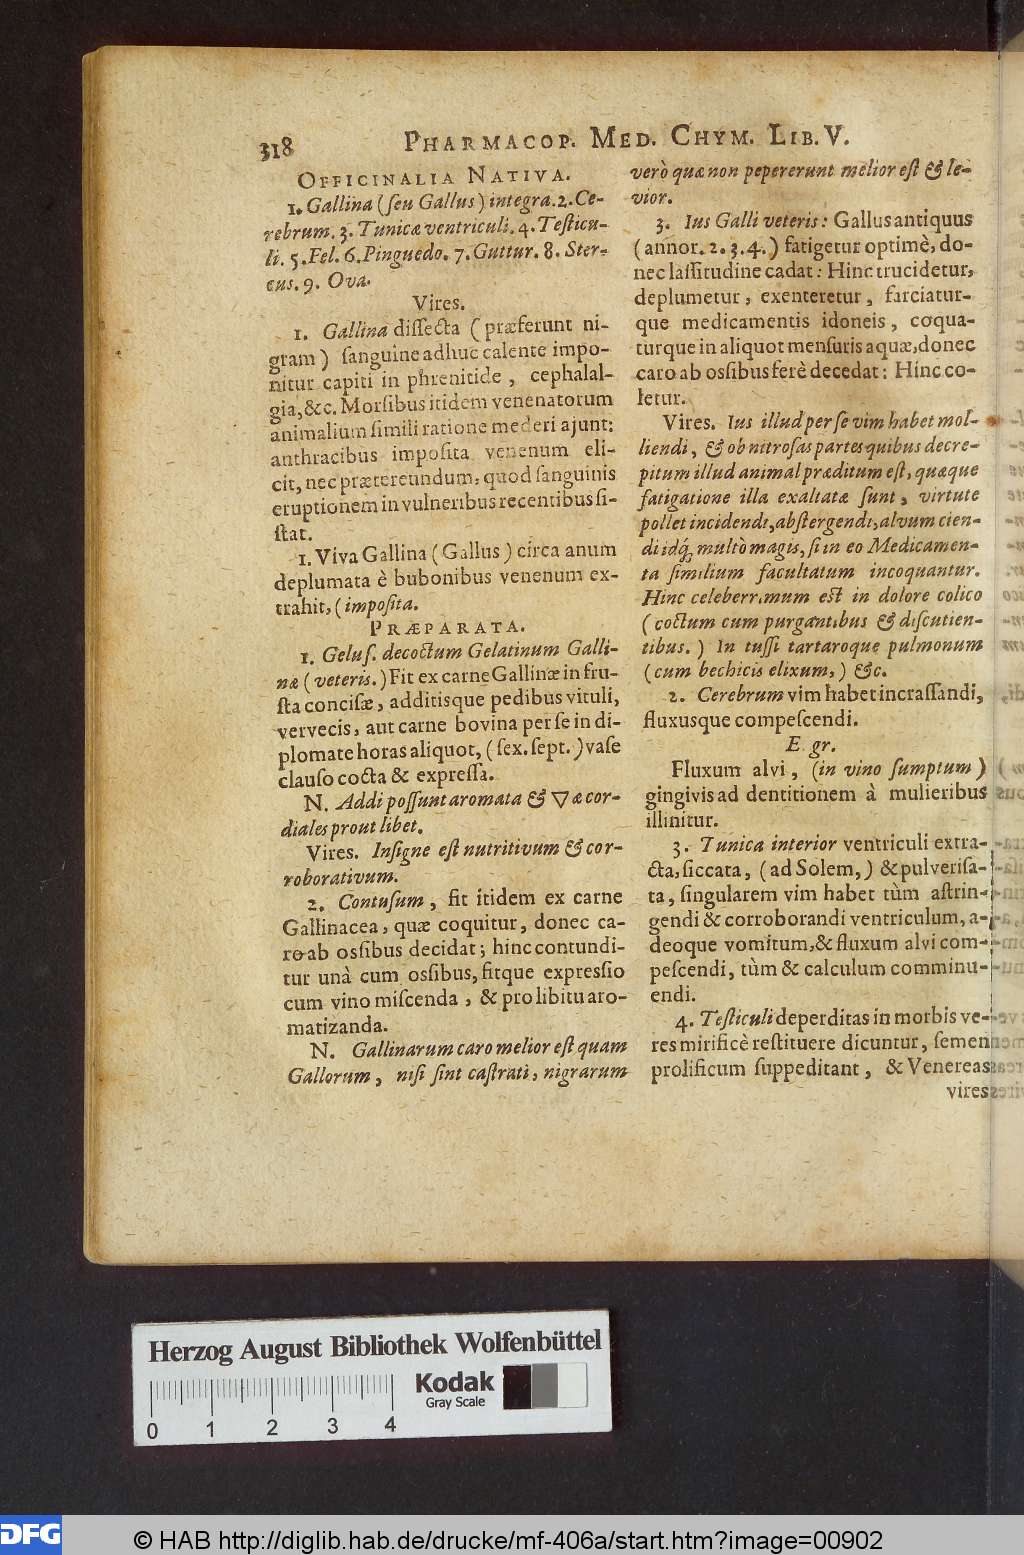 318
PHARMACOP. MED. CHYM. LIB. V.
OFFICINALIA NATIVA.
1. Gallina (ſeu Gallus) integra. 2. Ce-
rebrum. 3. Tunicæ ventriculi. 4. Teſticu-
li. 5. Fel. 6. Pinguedo. 7. Guttur. 8. Ster-
cus. 9. Ova.
Vires.
1. Gallina diſſecta (præferunt ni-
gram) ſanguine adhuc calente impo-
nitur capiti in phrenitide, cephalal-
gia, &c. Morſibus itidem venenatorum
animalium ſimili ratione mederi ajunt:
anthracibus impoſita venenum eli-
cit, nec prætereundum, quod ſanguinis
eruptionem in vulneribus recentibus ſi-
ſtat.
1. Viva Gallina (Gallus) circa anum
deplumata è bubonibus venenum ex-
trahit, (impoſita.
PRÆPARATA.
1. Geluſ. decoctum Gelatinum Galli-
næ (veteris.) Fit ex carne Gallinæ in fru-
ſta conciſæ, additisque pedibus vituli,
vervecis, aut carne bovina per ſe in di-
plomate horas aliquot, (ſex. ſept.) vaſe
clauſo cocta & expreſſa.
N. Addi poſſunt aromata & ▽æ cor-
diales prout libet.
Vires. Inſigne eſt nutritivum & cor-
roborativum.
2. Contuſum, fit itidem ex carne
Gallinacea, quæ coquitur, donec ca-
ro ab oſſibus decidat; hinc contundi-
tur unà cum oſſibus, fitque expreſſio
cum vino miſcenda, & pro libitu aro-
matizanda.
N. Gallinarum caro melior eſt quam
Gallorum, niſi ſint caſtrati, nigrarum
verò quæ non pepererunt melior eſt & le-
vior.
3. Ius Galli veteris: Gallus antiquus
(annor. 2. 3. 4.) fatigetur optimè, do-
nec laſſitudine cadat: Hinc trucidetur,
deplumetur, exenteretur, farciatur-
que medicamentis idoneis, coqua-
turque in aliquot menſuris aquæ, donec
caro ab oſſibus ferè decedat: Hinc co-
letur.
Vires. Ius illud per ſe vim habet mol-
liendi, & ob nitroſas partes quibus decre-
pitum illud animal præditum eſt, quæque
fatigatione illa exaltatæ ſunt, virtute
pollet incidendi, abſtergendi, alvum cien-
di idq́; multò magis, ſi in eo Medicamen-
ta ſimilium facultatum incoquantur.
Hinc celeberrimum eſt in dolore colico
(coctum cum purgantibus & diſcutien-
tibus.) In tuſſi tartaroque pulmonum
(cum bechicis elixum,) &c.
2. Cerebrum vim habet incraſſandi,
fluxusque compeſcendi.
E. gr.
Fluxum alvi, (in vino ſumptum)
gingivis ad dentitionem à mulieribus
illinitur.
3. Tunica interior ventriculi extra-
cta, ſiccata, (ad Solem,) & pulveriſa-
ta, ſingularem vim habet tùm aſtrin-
gendi & corroborandi ventriculum, a-
deoque vomitum, & fluxum alvi com-
peſcendi, tùm & calculum comminu-
endi.
4. Teſticuli deperditas in morbis ve-
res mirificè reſtituere dicuntur, ſemen
prolificum ſuppeditant, & Venereas
vires
Herzog August Bibliothek Wolfenbüttel
Kodak
Gray Scale
0 1 2 3 4
DFG
© HAB http://diglib.hab.de/drucke/mf-406a/start.htm?image=00902